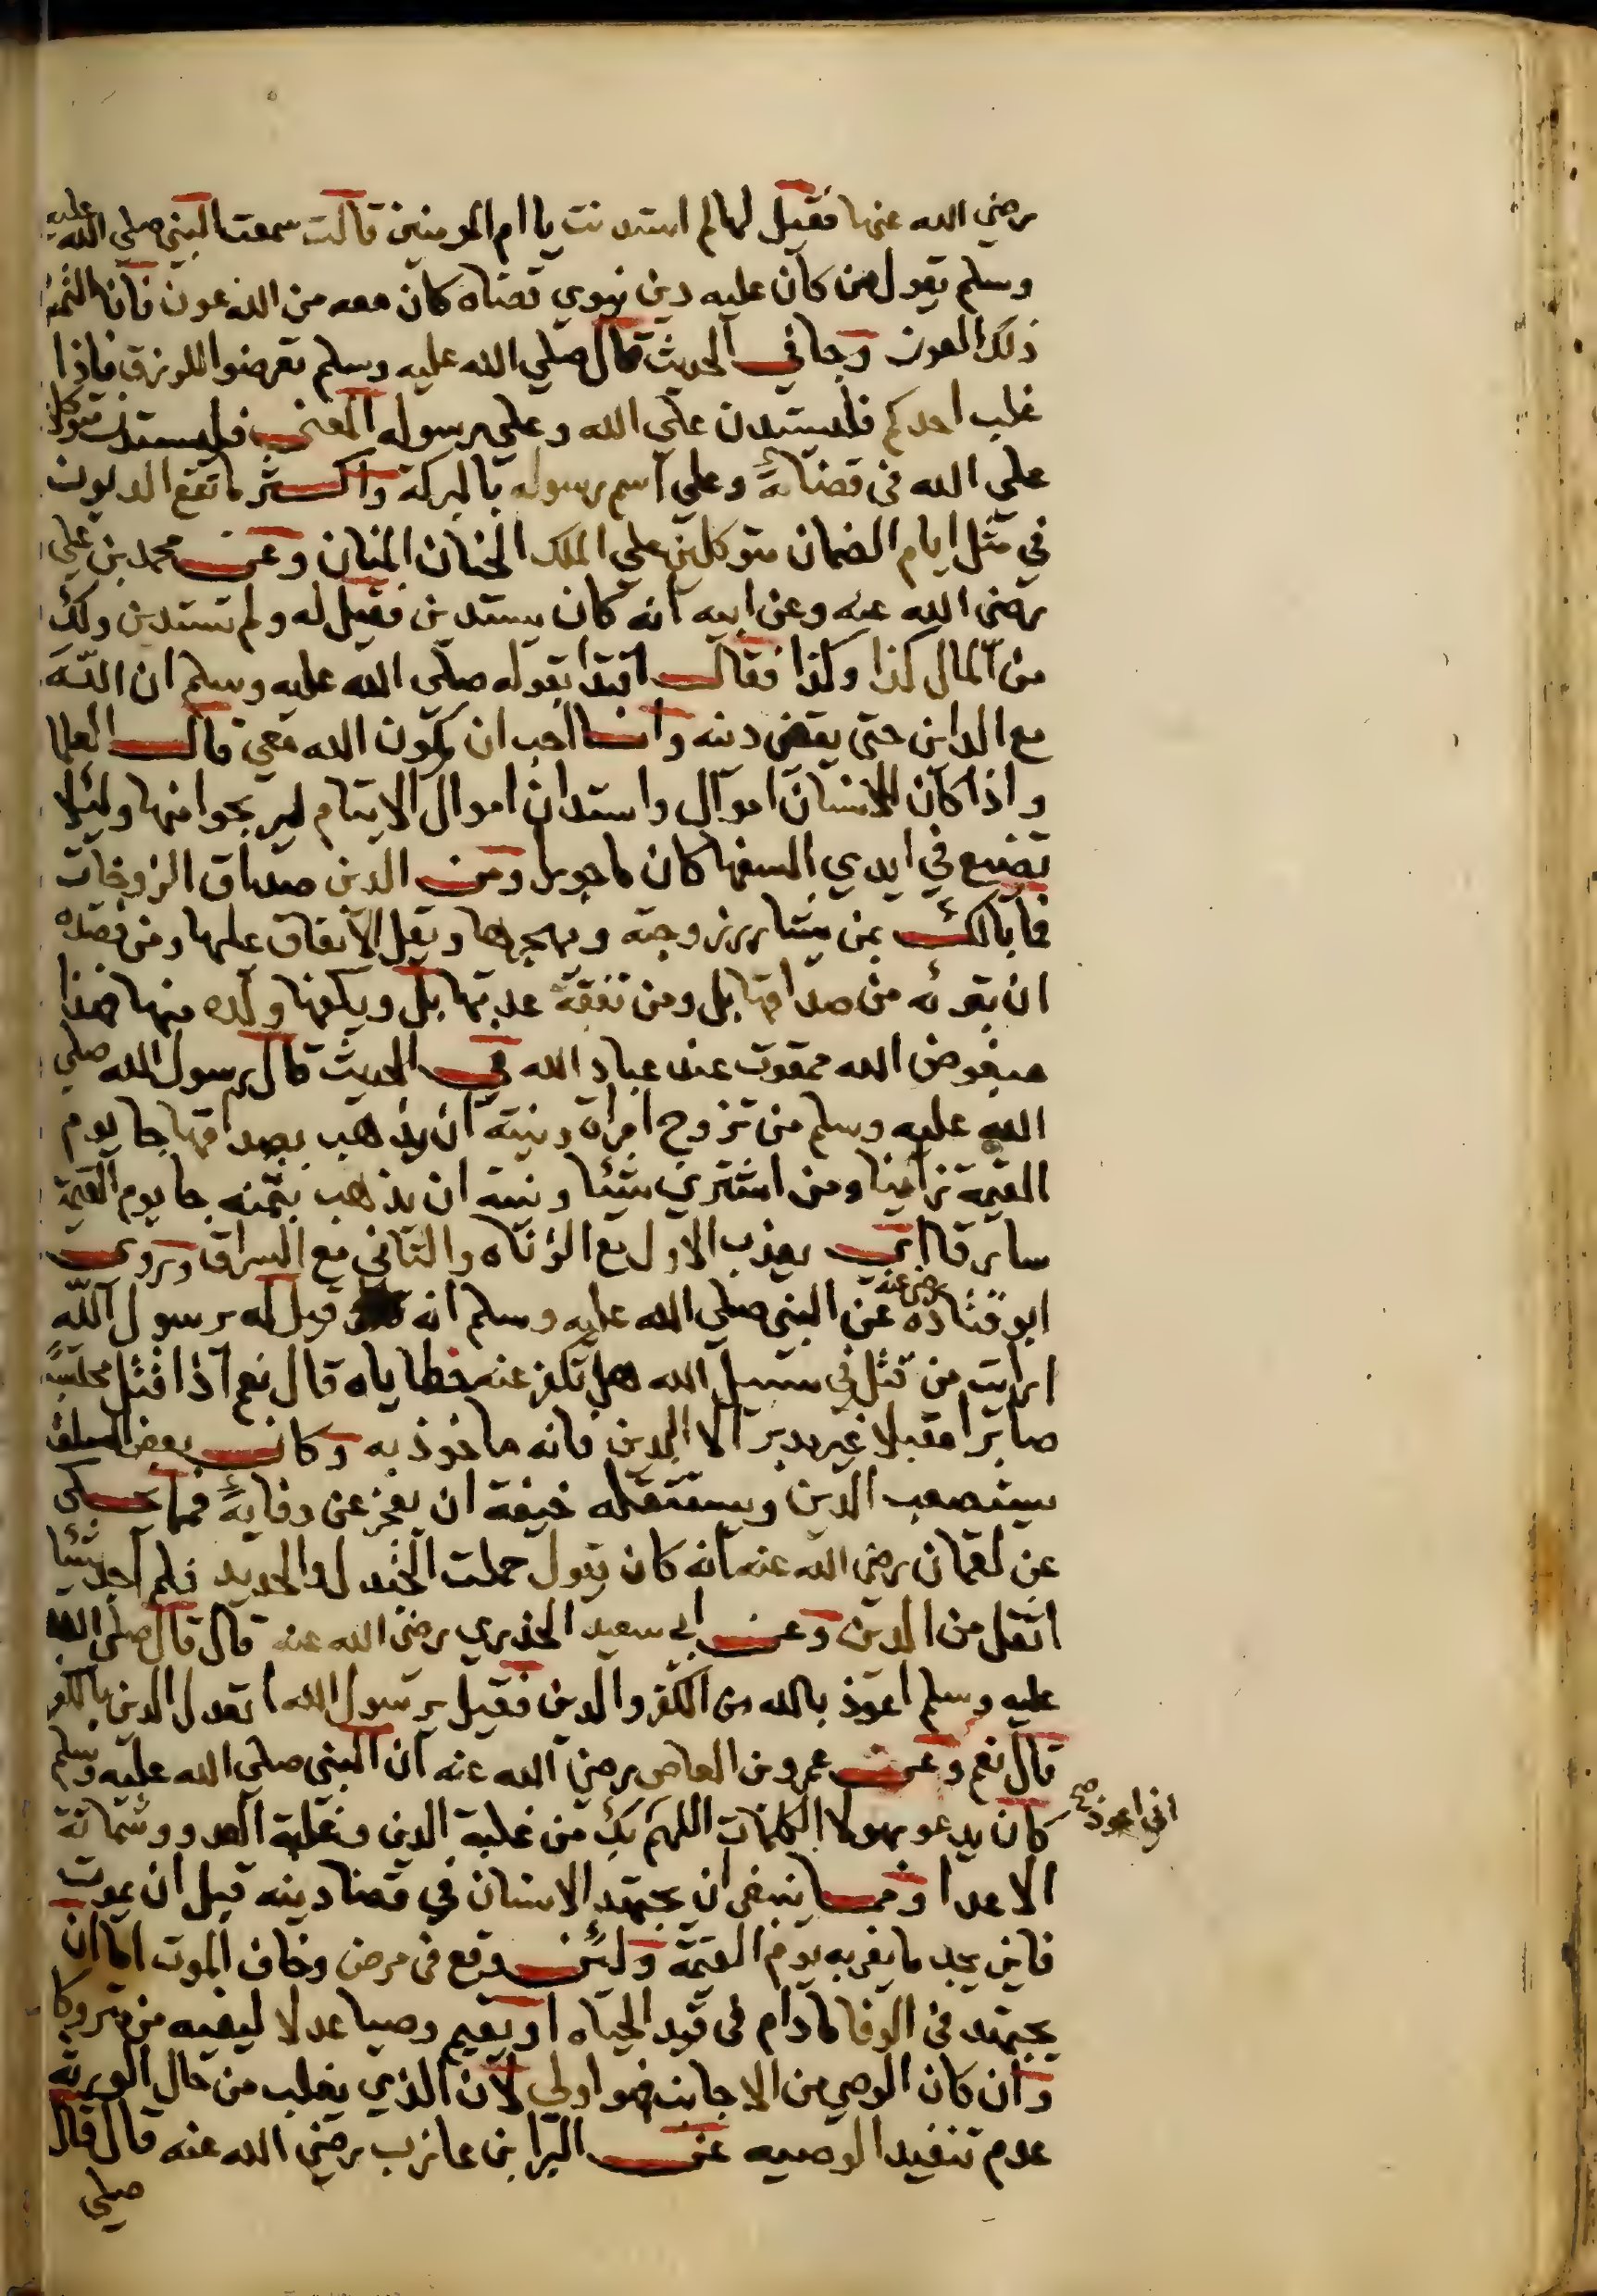 رضي الله عنها فقيل لها لم استدنت يا ام المومنين قالت سمعت النبي صلي الله عليه
وسلم يقول من كان عليه دين نيوي قضاه كان معه من الله عون فانا التمس
ذلك العون وجا في الحديث قال صلي الله عليه وسلم تعرضوا للرزق فاذا
غلب احدكم فليستدن علي الله وعلي رسوله المعني فليستدن متوكلا
علي الله في قضائه وعلي اسم رسوله بالبركة واكثر ما تقع الديون
في مثل ايام الضمان متوكلين علي الملك الحنان المنان وعن محمد بن علي
رضي الله عنه وعن ابيه انه كان يستدين فقيل له ولم تستدين ولك
من المال كذا وكذا فقال اقتدا بقوله صلي الله عليه وسلم ان الله
مع الداين حتي يقضي دينه وانا احب ان يكون الله معي قال العلما
واذا كان للانسان اموال واستدان اموال الايتام ليربحوا منها وليلا
تضيع في ايدي السفها كان ماجورا ومن الدين صداق الزوجات
فما بالك بمن يشارر زوجته ويهجرها ويقل الانفاق عليها ومن قصده
ان تبرئه من صداقها بل ومن نفقة عدتها بل ويكفها ولده منها هذا
مبغوض الله ممقوت عند عباد الله في الحديث قال رسول الله صلي
الله عليه وسلم من تزوج امراة ونيته ان يذهب بصداقها جا يوم
القيمة زانيا ومن اشتري شيئا ونيته ان يذهب بثمنه جا يوم القيمة
سارقا اي يعذب الاول مع الزناه والثاني مع السراق وروي
ابو قتاده رضي عنه عن النبي صلي الله عليه وسلم انه قيل له يرسول الله
ارايت من قتل في سبيل الله هل تكفر عنه خطاياه قال نعم اذا قتل محتسبا
صابرا مقبلا غير مدبر الا الدين فانه ماخوذ به وكان بعض السلف
يستصعب الدين ويستثقله خيفة ان يعجز عن وفايه فما حكي
عن لقمان رضي الله عنه انه كان يقول حملت الجندل والحديد فلم احد شيئا
اثقل من الدين وعن ابي سعيد الخذري رضي الله عنه قال قال صلي الله
عليه وسلم اعوذ بالله من الكفر والدين فقيل يرسول الله اتعدل الدين بالكفر
قال نعم وعن عمرو بن العاص رضي الله عنه ان النبي صلي الله عليه وسلم
كان يدعو بهولا الكلمات اللهم بك من غلبة الدين وغلبة العدو وشماتة
اني اعوذ صح
الاعدا ومما ينبغي ان يجتهد الانسان في قضا دينه قبل ان يموت
فاين يجد ما يفي به يوم القيمة ولئن وقع في مرض وخاف الموت اما ان
يجتهد في الوفا مادام في قيد الحياه او يقيم وصيا عدلا ليفيه من متروكا
وان كان الوصي من الاجانب فهو اولي لان الذي يغلب من حال الورثة
عدم تنفيد الوصيه عن البرا بن عازب رضي الله عنه قال قال
صلي